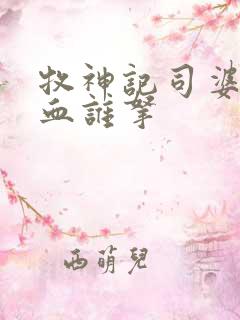 牧神記司婆
血誰拏
西萌兒